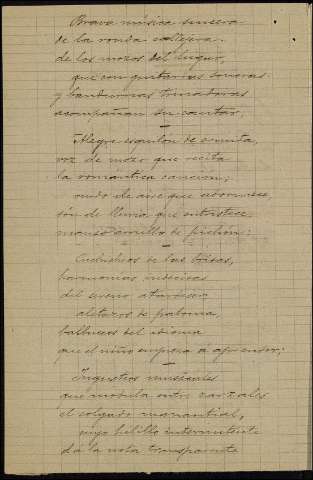 Brava música sincera
de la ronda callejera
de los mozos del lugar,
que con guitarras sonoras
y bandurrias trinadoras
acompañan su cantar;
Alegre esquilón de ermita,
voz de mozo que recita
la romántica canción;
ruido de aire que adormece,
són de lluvia que entristece,
manso arrullo de pichón;
Cuchicheos de las brisas,
harmonías indecisas
del sereno atardecer,
aletazos de paloma,
balbuceos del idioma
que el niño empieza á aprender;
musicales
que modula entre zarzales
el colgado manantial,
cuyo hilillo intermitente
dá la nota transparente